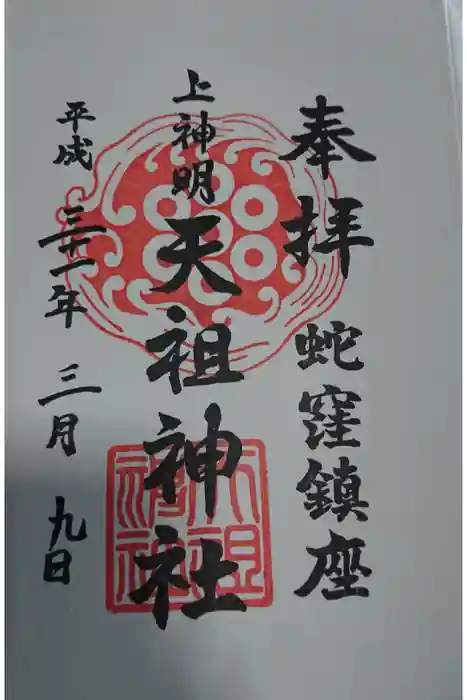 奉拝 蛇窪鎮座
上神明
天祖神社
平成三十一年 三月 九日
天祖
神社